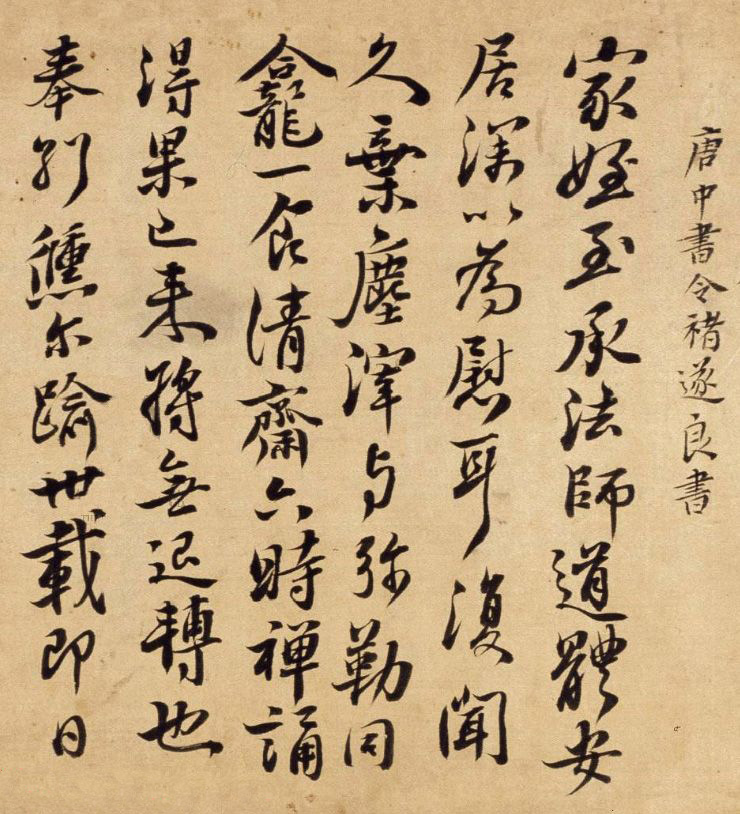 唐中書令褚遂良書
家姪至承法師道體安
居深以為慰耳復聞
久棄塵滓与弥勒同
龕一食清齋六時禅誦
得果已来將無退轉也
奉別儵尔踰卅載即日